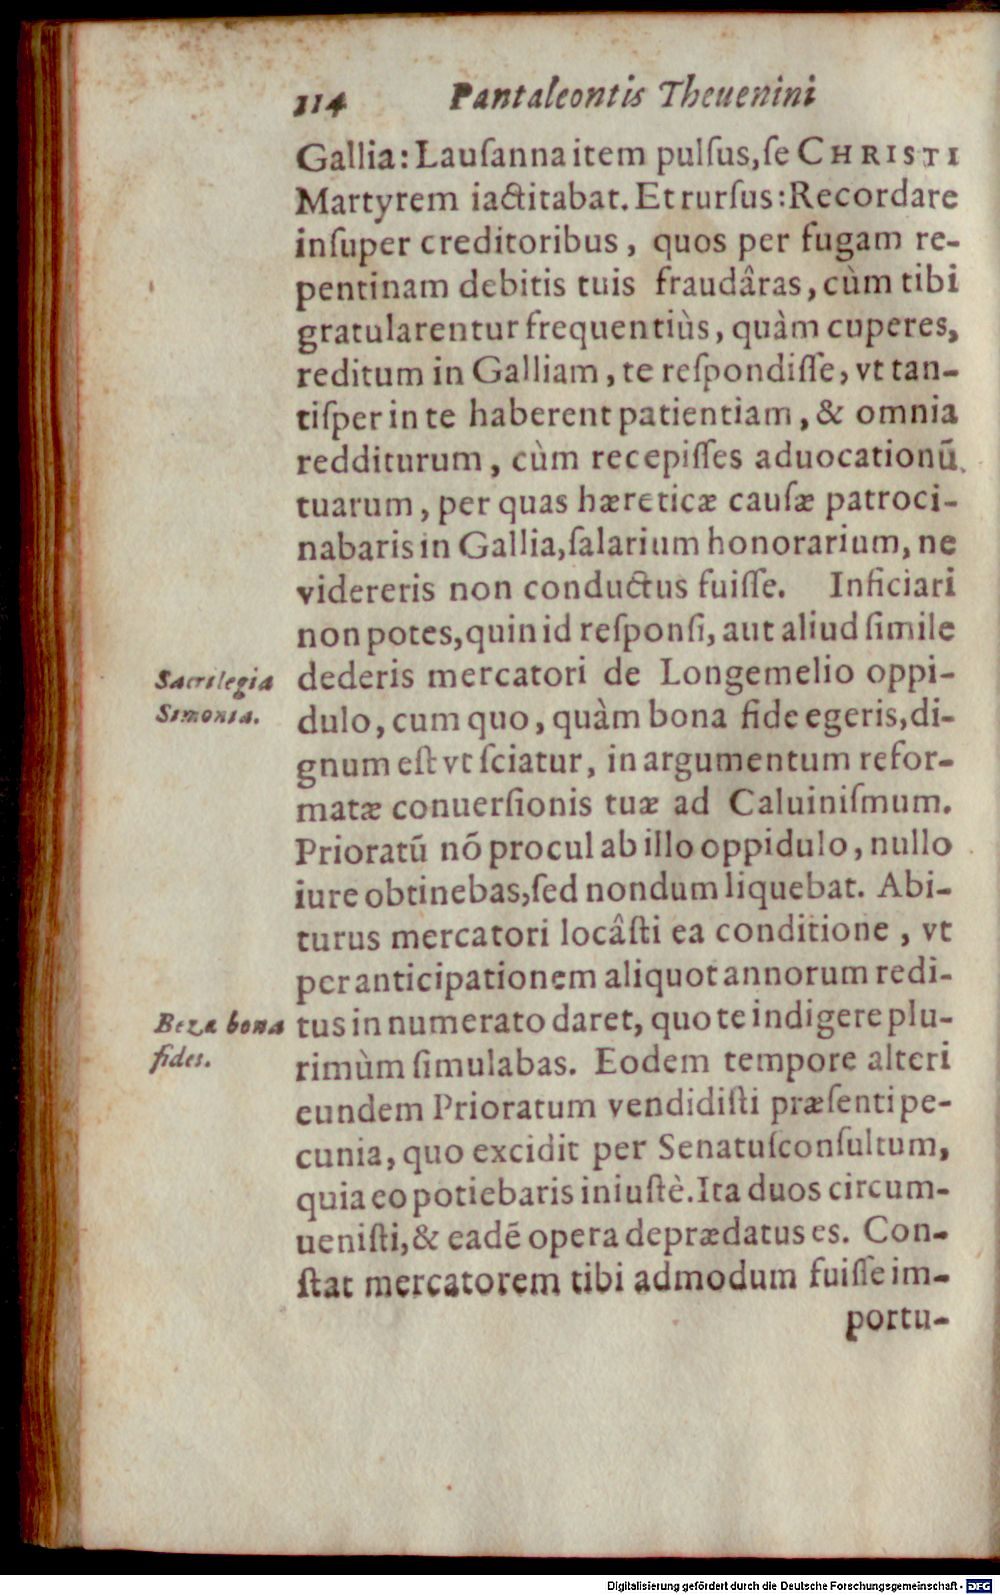 114 Pantaleontis Theuenini
Gallia: Lauſanna item pulſus, ſe CHRISTI
Martyrem iactitabat. Et rurſus: Recordare
inſuper creditoribus, quos per fugam re-
pentinam debitis tuis fraudâras, cùm tibi
gratularentur frequentiùs, quàm cuperes,
reditum in Galliam, te reſpondiſſe, vt tan-
tiſper in te haberent patientiam, & omnia
redditurum, cùm recepiſſes aduocationũ
tuarum, per quas hæreticæ cauſæ patroci-
nabaris in Gallia, ſalarium honorarium, ne
videreris non conductus fuiſſe. Inficiari
non potes, quin id reſponſi, aut aliud ſimile
Sacrilegia
Simonia.
dederis mercatori de Longemelio oppi-
dulo, cum quo, quàm bona fide egeris, di-
gnum eſt vt ſciatur, in argumentum refor-
matæ conuerſionis tuæ ad Caluiniſmum.
Prioratũ nõ procul ab illo oppidulo, nullo
iure obtinebas, ſed nondum liquebat. Abi-
turus mercatori locâſti ea conditione, vt
per anticipationem aliquot annorum redi-
Bezæ bona
fides.
tus in numerato daret, quo te indigere plu-
rimùm ſimulabas. Eodem tempore alteri
eundem Prioratum vendidiſti præſenti pe-
cunia, quo excidit per Senatuſconſultum,
quia eo potiebaris iniuſtè. Ita duos circum-
ueniſti, & eadẽ opera deprædatus es. Con-
ſtat mercatorem tibi admodum fuiſſe im-
portu-
Digitalisierung gefördert durch die Deutsche Forschungsgemeinschaft - DFG